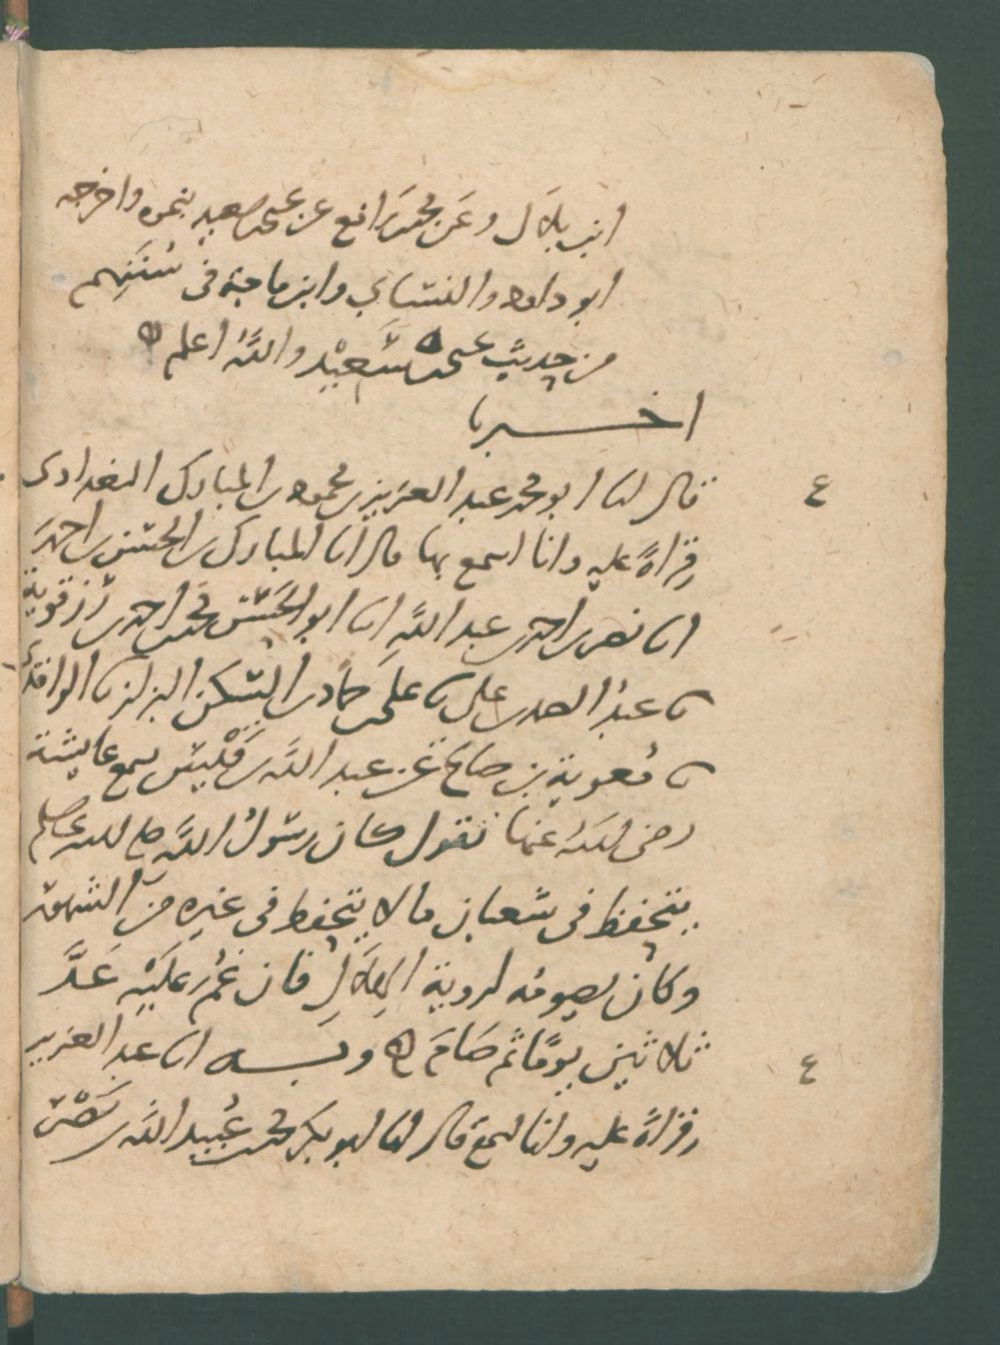 ابن بلال وعن محمد بن رافع عن يحيى بن سعيد بنحوه واخرجه
ابو داود والنسائي وابن ماجة في سننهم
من حديث يحيى بن سعيد والله اعلم ه
اخبرنا
قال انا ابو محمد عبد العزيز بن محمود بن المبارك البغدادي
قراءة عليه وانا اسمع بها قال انا المبارك بن الحسن بن احمد
انا نصر بن احمد بن عبد الله انا ابو الحسن محمد بن احمد بن رزقوية
نا عبد الصمد بن علي نا علي بن حماد بن السكن البزاز نا الواقدي
نا معوية بن صالح عن عبد الله بن قيس سمع عايشة
رضي الله عنها تقول كان رسول الله صلى الله عليه وسلم
يتحفظ في شعبان ما لا يتحفظ في غيره من الشهور
وكان يصومه لروية الهلال فان غم عليه عد
ثلاثين يوما ثم صام ه وبه انا عبد العزيز
قراءة عليه وانا اسمع قال انا ابو بكر محمد بن عبيد الله بن نصر